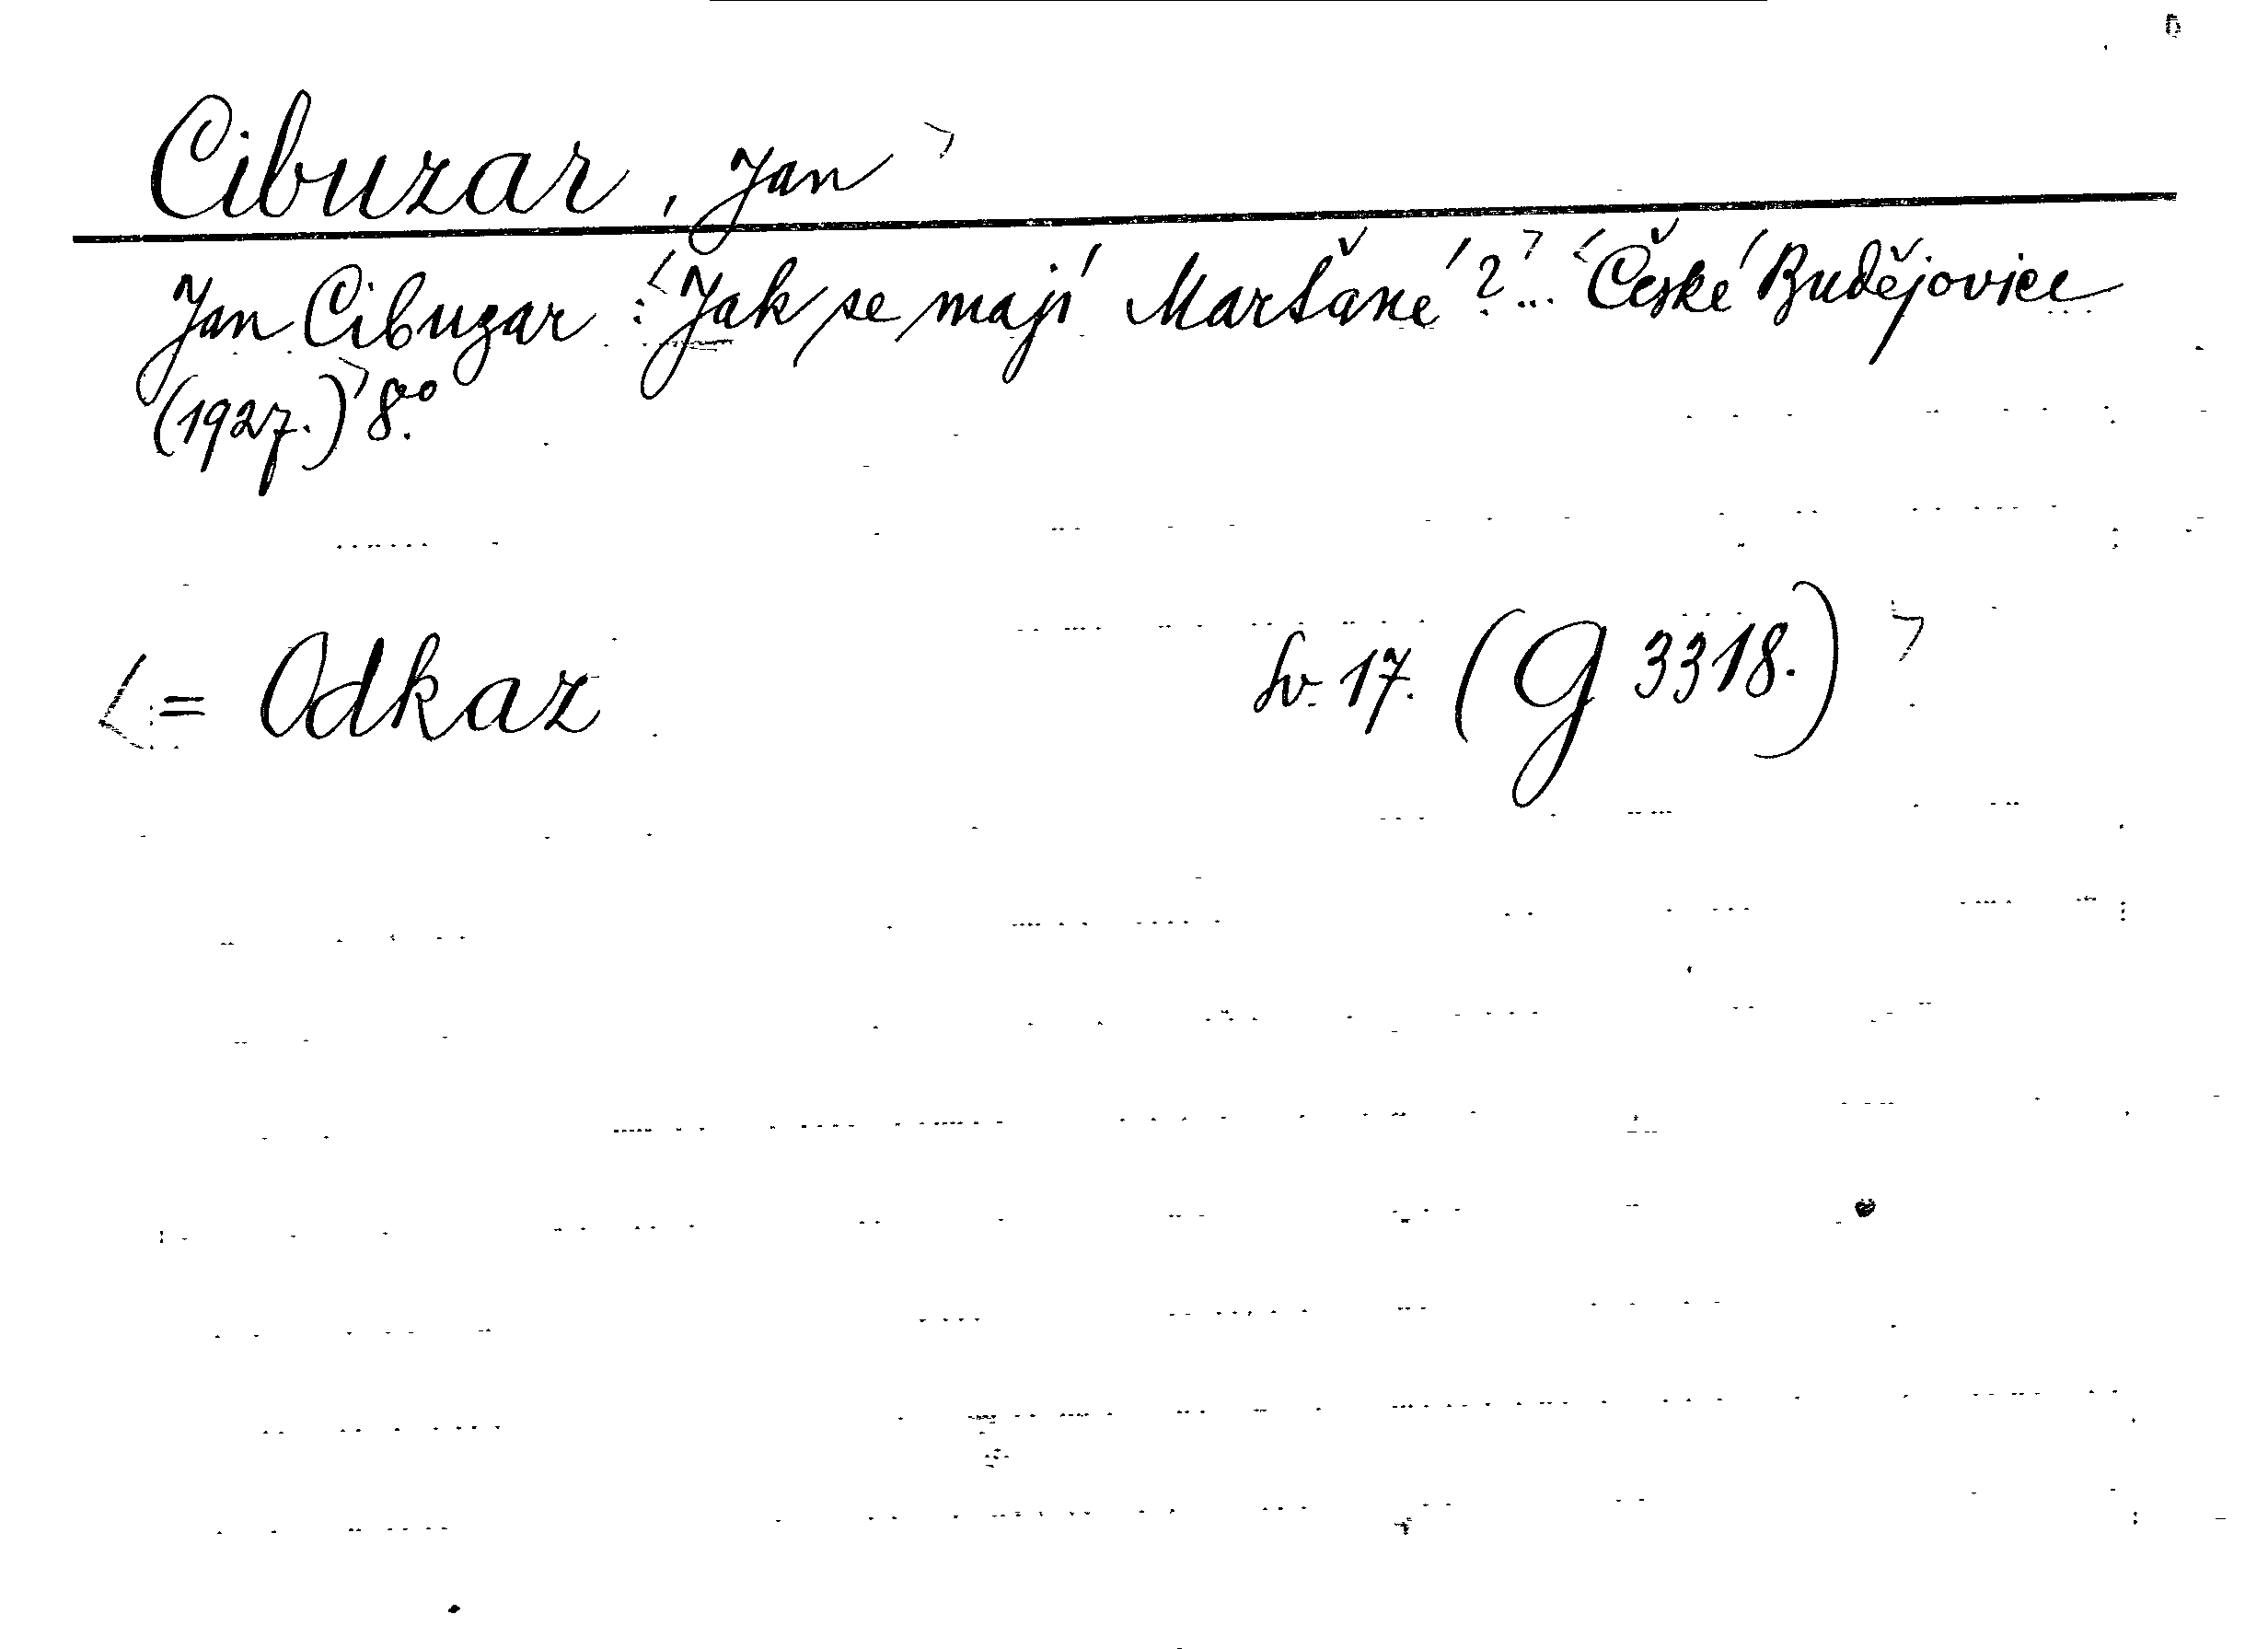 Cibuzar, Jan >
Jan Cibuzar : <Jak se mají Maršané?> ... <České Budějovice
(1927.)> 8.°
<= Odkaz Sv. 17. (G 3318.) >